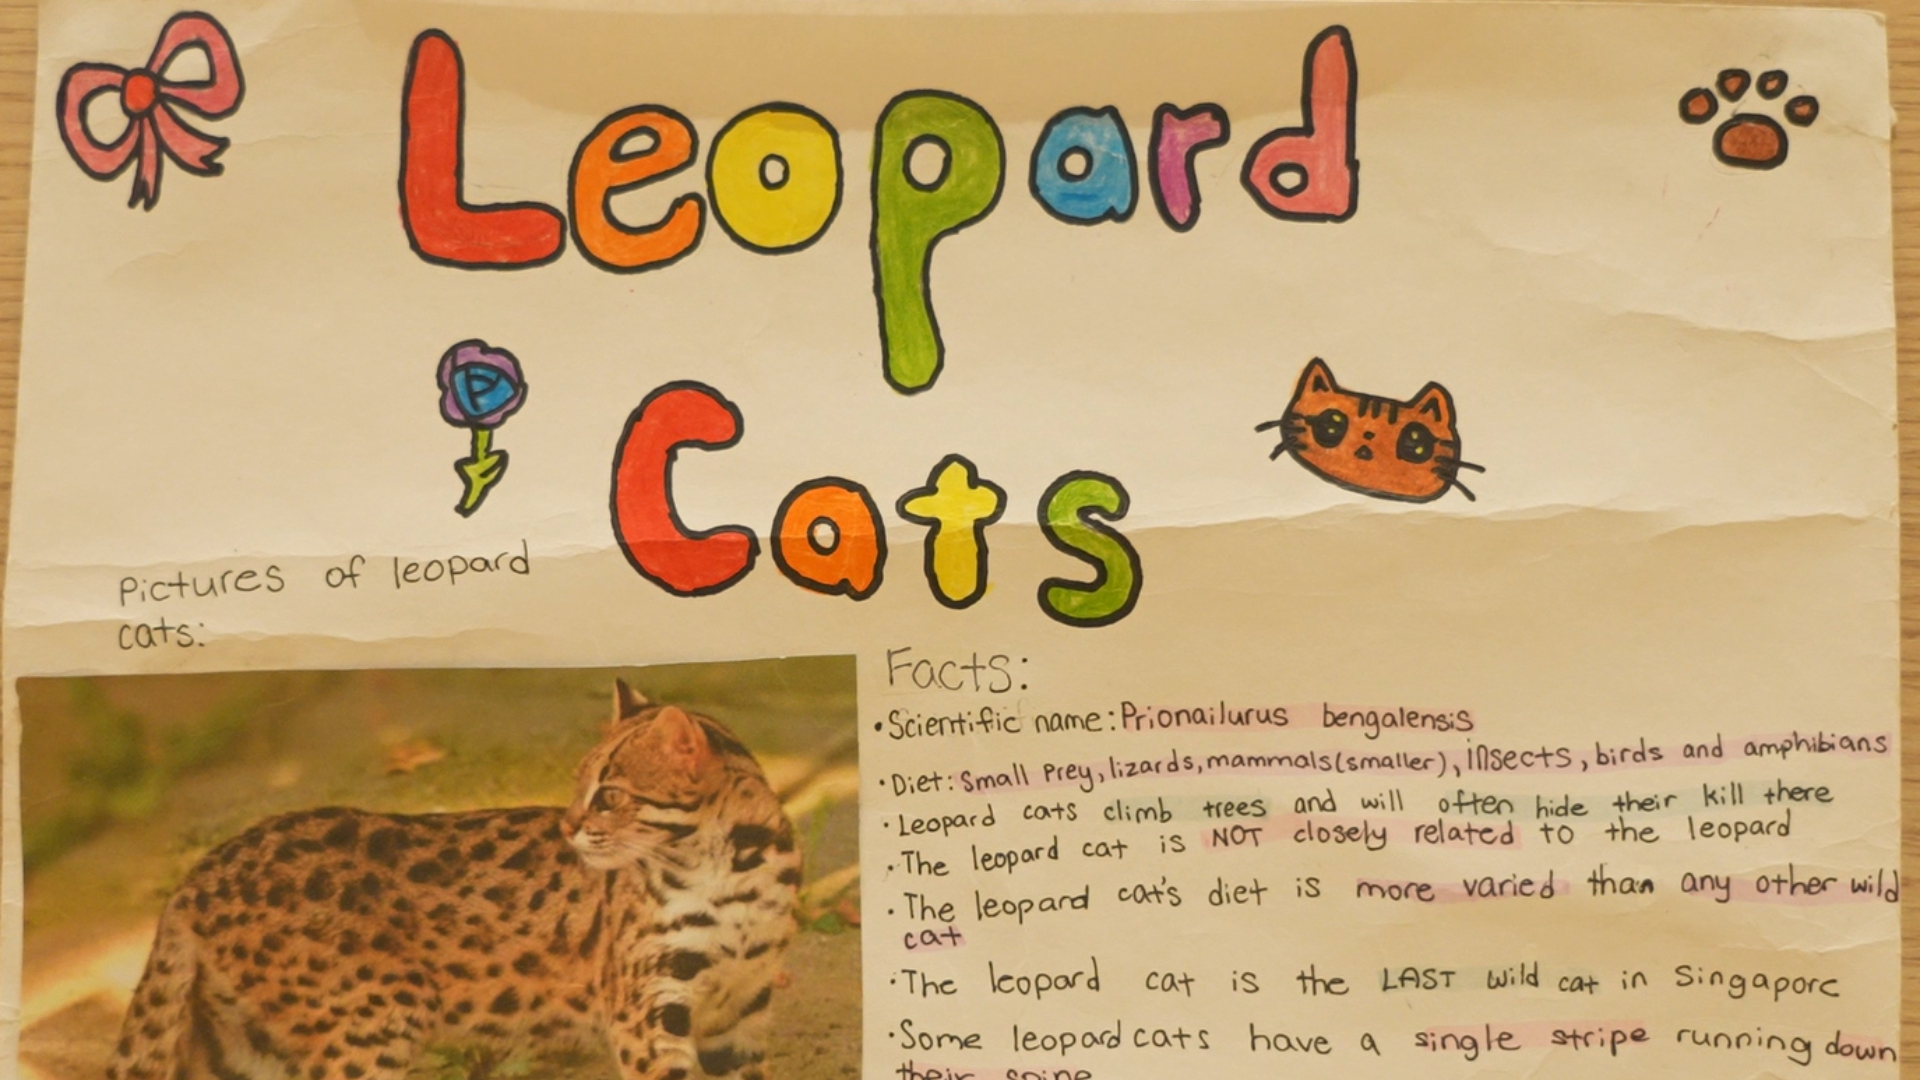 Leopard
Cats
P
Pictures of leopard
cats:
Facts:
•Scientific name: Prionailurus bengalensis
•Diet: Small Prey, lizards, mammals(smaller), insects, birds and amphibians
•Leopard cats climb trees and will often hide their kill there
•The leopard cat is NOT closely related to the leopard
•The leopard cat's diet is more varied than any other wild
cat
•The leopard cat is the LAST wild cat in Singapore
•Some leopard cats have a single stripe running down
their spine